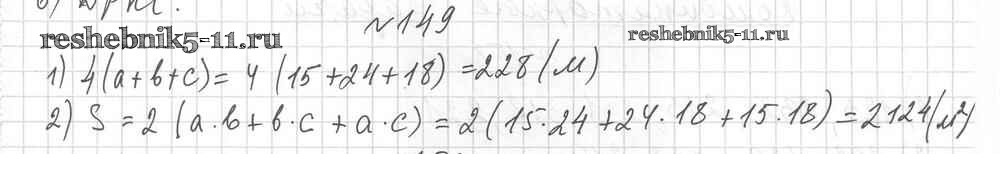 №149
reshebnik5-11.ru reshebnik5-11.ru
1) 4(a+b+c)= 4 (15+24+18) =228(м)
2) S = 2 (a·b+b·c +a·c) = 2(15·24+24·18+15·18)=2124(м²)